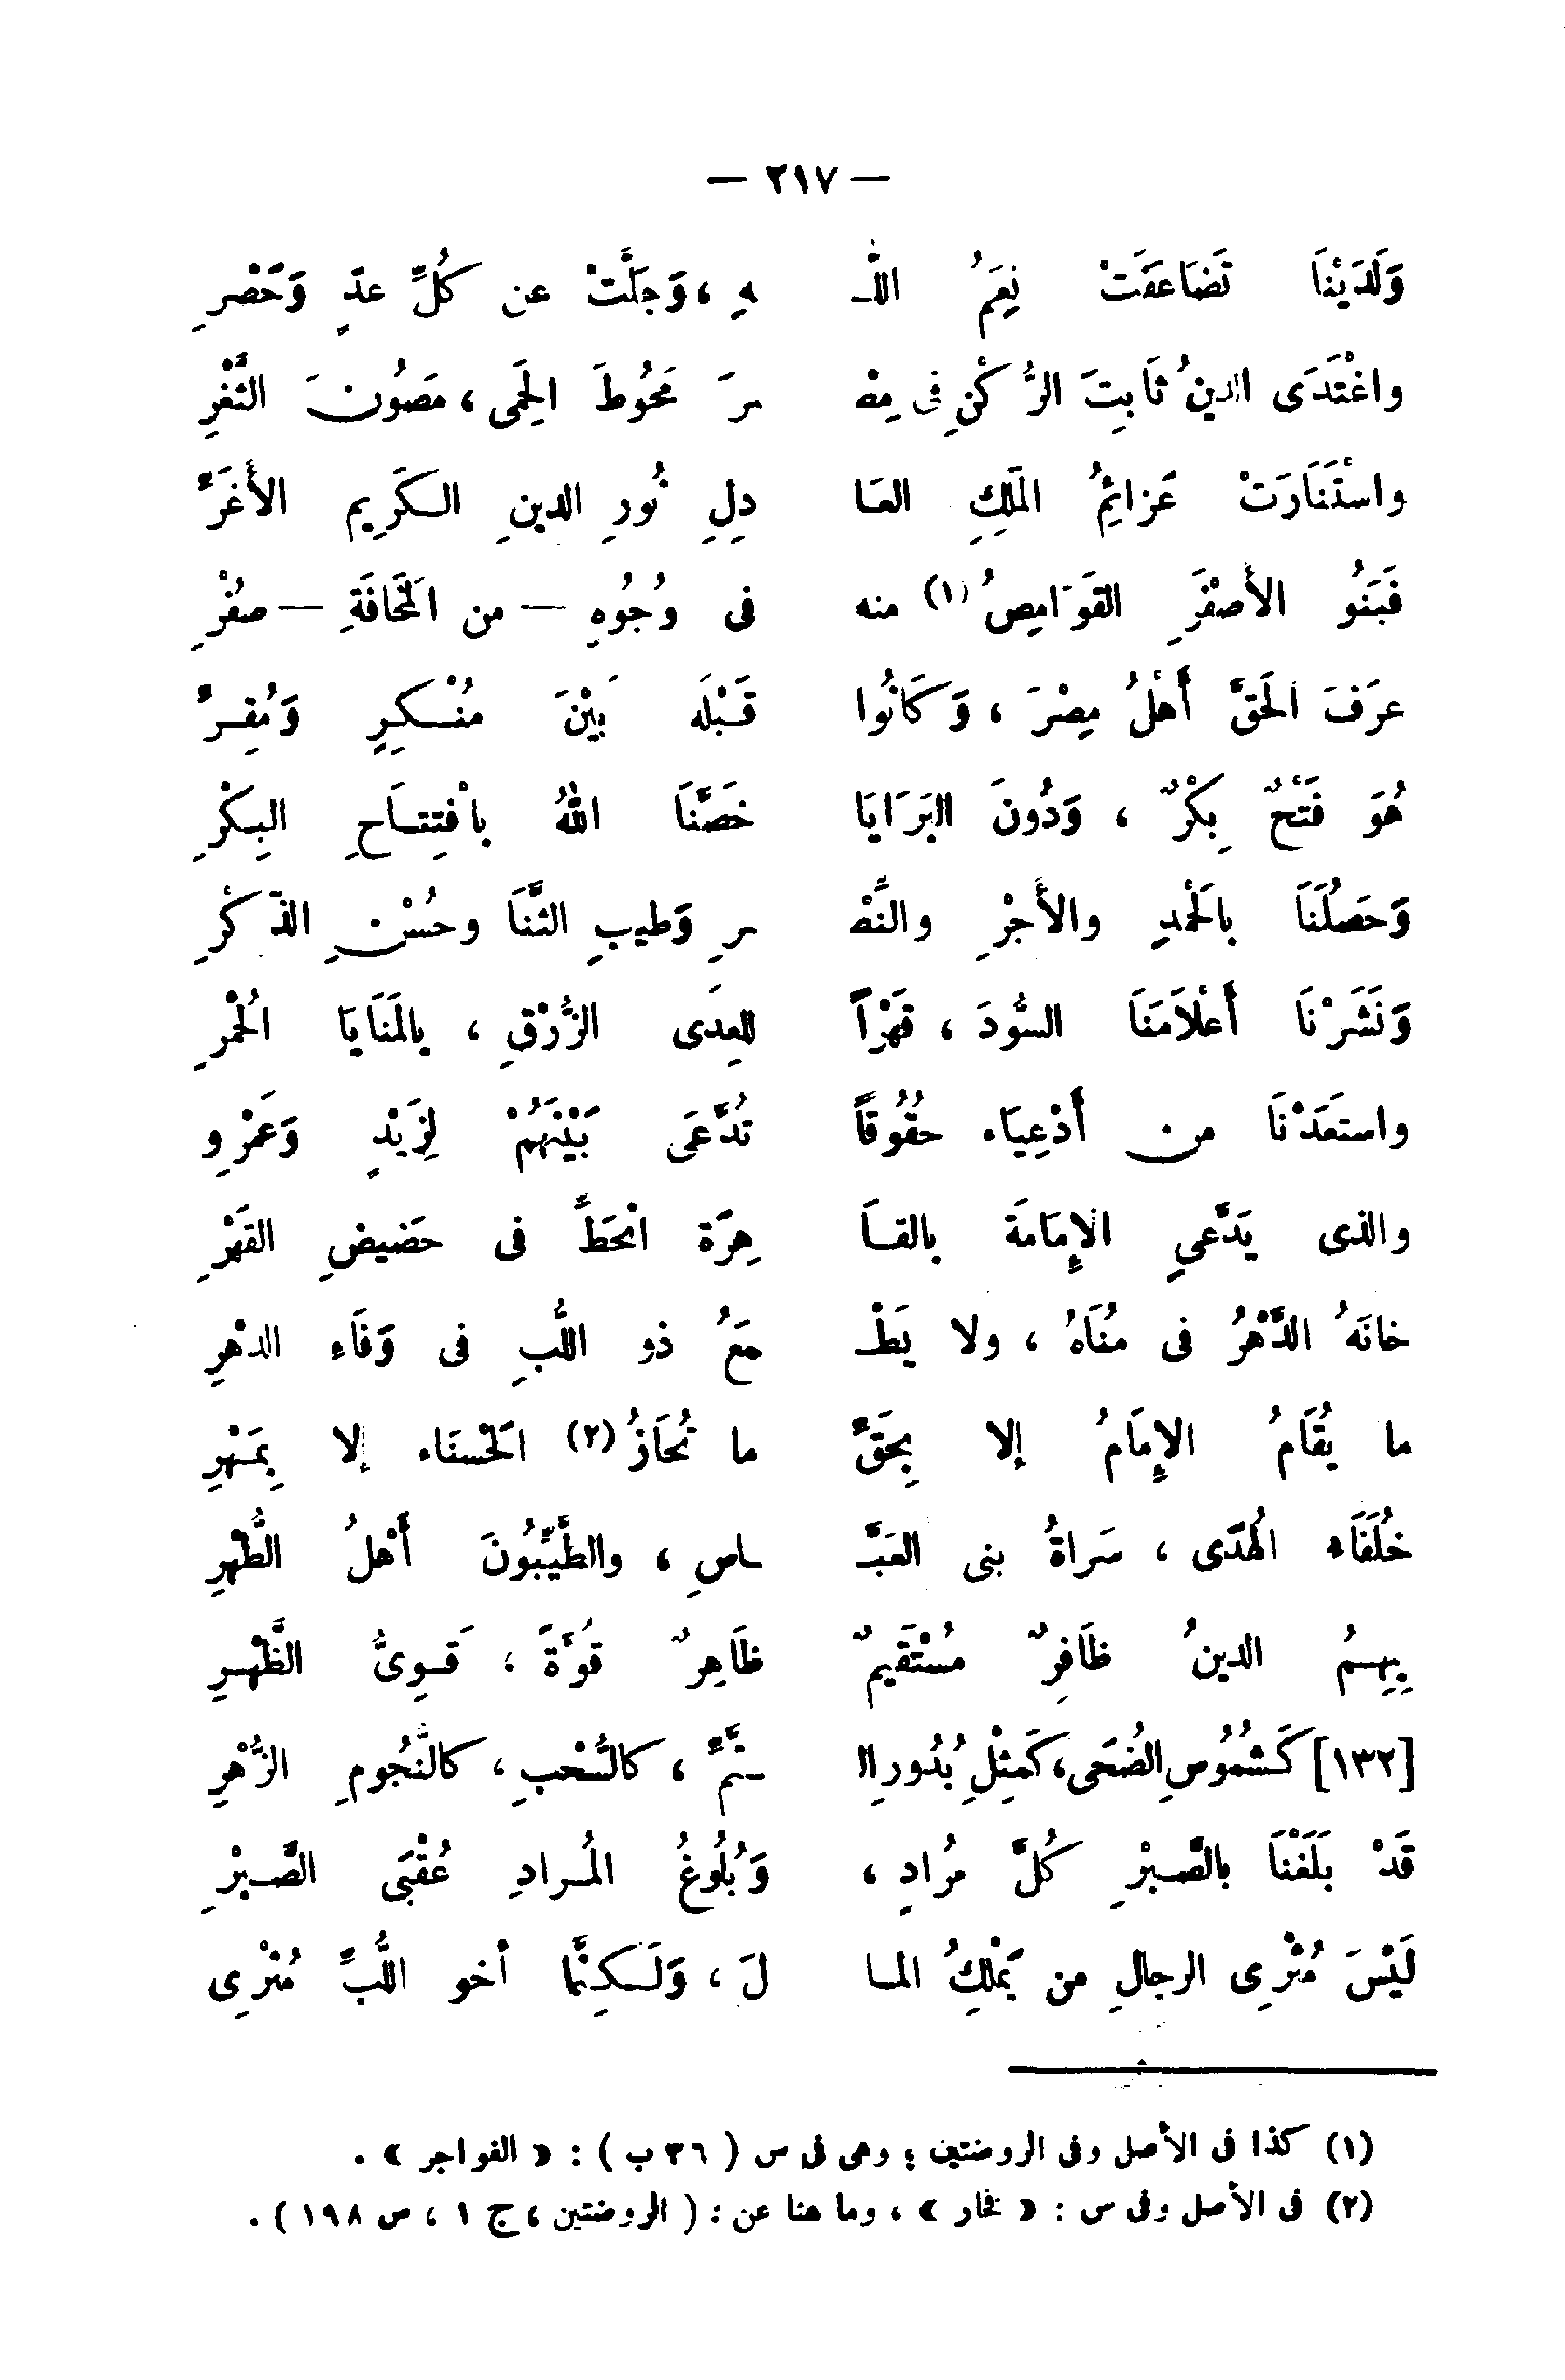 — ٢١٧ —
وَلَدَيْنَا تَضَاعَفَتْ نِعَمُ اللّـ ـهِ ، وَجَلَّتْ عن كُلِّ عدٍّ وَحَصْرِ
واغْتَدَى الدينُ ثَابِتَ الرُّكْنِ فى مِصْـ ـرَ مَحُوطَ الحِمَى ، مَصُونَ الثَّغْرِ
واسْتَنَارَتْ عَزائِمُ المَلِكِ العَا دِلِ نُورِ الدينِ الكَرِيم الأَغَرِّ
فَبَنُو الأَصْفَرِ القَوَامِصُ (١) منه فى وُجُوهٍ — من المَخَافَةِ — صُفْرِ
عرَفَ الحَقَّ أَهْلُ مِصْرَ ، وَكَانُوا قَبْلَه بَيْنَ مُنْكِرٍ وَمُقِرِّ
هُوَ فَتْحٌ بِكْرٌ ، وَدُونَ البَرَايَا خَصَّنَا اللهُ بافْتِتَاحِ البِكْرِ
وَحَصُلْنَا بالحَمْدِ والأَجْرِ والنَّصْـ ـرِ وَطيبِ الثَّنَا وحُسْنِ الذّكْرِ
وَنَشَرْنَا أَعْلاَمَنَا السُّودَ ، قَهْراً للعِدَى الزُّرْقِ ، بالمَنَايَا الحُمْرِ
واستَعَدْنَا من أَدْعِيَاء حقُوُقاً تُدَّعَى بَيْنَهُمْ لِزَيْدٍ وَعَمْرِو
والذى يَدَّعِى الإِمَامَة بالقـا هِرَة انْحَطَّ فى حَضيضِ القَهْرِ
خانَهُ الدَّهْرُ فى مُنَاهُ ، ولا يَطْـ مَعُ ذو اللُّبِ فى وَفَاءِ الدهْرِ
ما يُقَامُ الإِمَامُ إلا بِحَقٍّ ما تُحَازُ (٢) الحَسْنَاء إلا بِمَهْرِ
خُلَفَاء الهُدَى ، سَراةُ بنى العَبَّـ ـاسِ ، والطَّيِّبُونَ أَهْلُ الطُّهْرِ
بِهِمُ الدينُ ظَافِرٌ مُسْتَقِيمٌ ظَاهِرٌ قُوَّةً ، قَوِىُّ الظَّهْرِ
[١٣٢] كَشُمُوُسِ الضُحَى، كَمِثْلِ بُدُورِ الـ ـتَّمِّ ، كالسُّحْبِ ، كالنَّجُومِ الزُّهْرِ
قَدْ بَلَغْنَا بالصَّبْرِ كُلَّ مرُادٍ ، وَبُلُوغُ المُرادِ عُقْبَى الصَّبْرِ
لَيْسَ مُثْرِى الرجالِ من يَمْلِكُ المـا لَ ، وَلَكِنَّما أخو اللُّبِّ مُثْرِى
(١) كذا فى الأصل وفى الروضتين ؛ وهى فى س ( ٣٦ ب ) : « الفواجر » .
(٢) فى الأصل وفى س : « فخار » ، وما هنا عن : ( الروضتين ، ج ١ ، ص ١٩٨ ) .